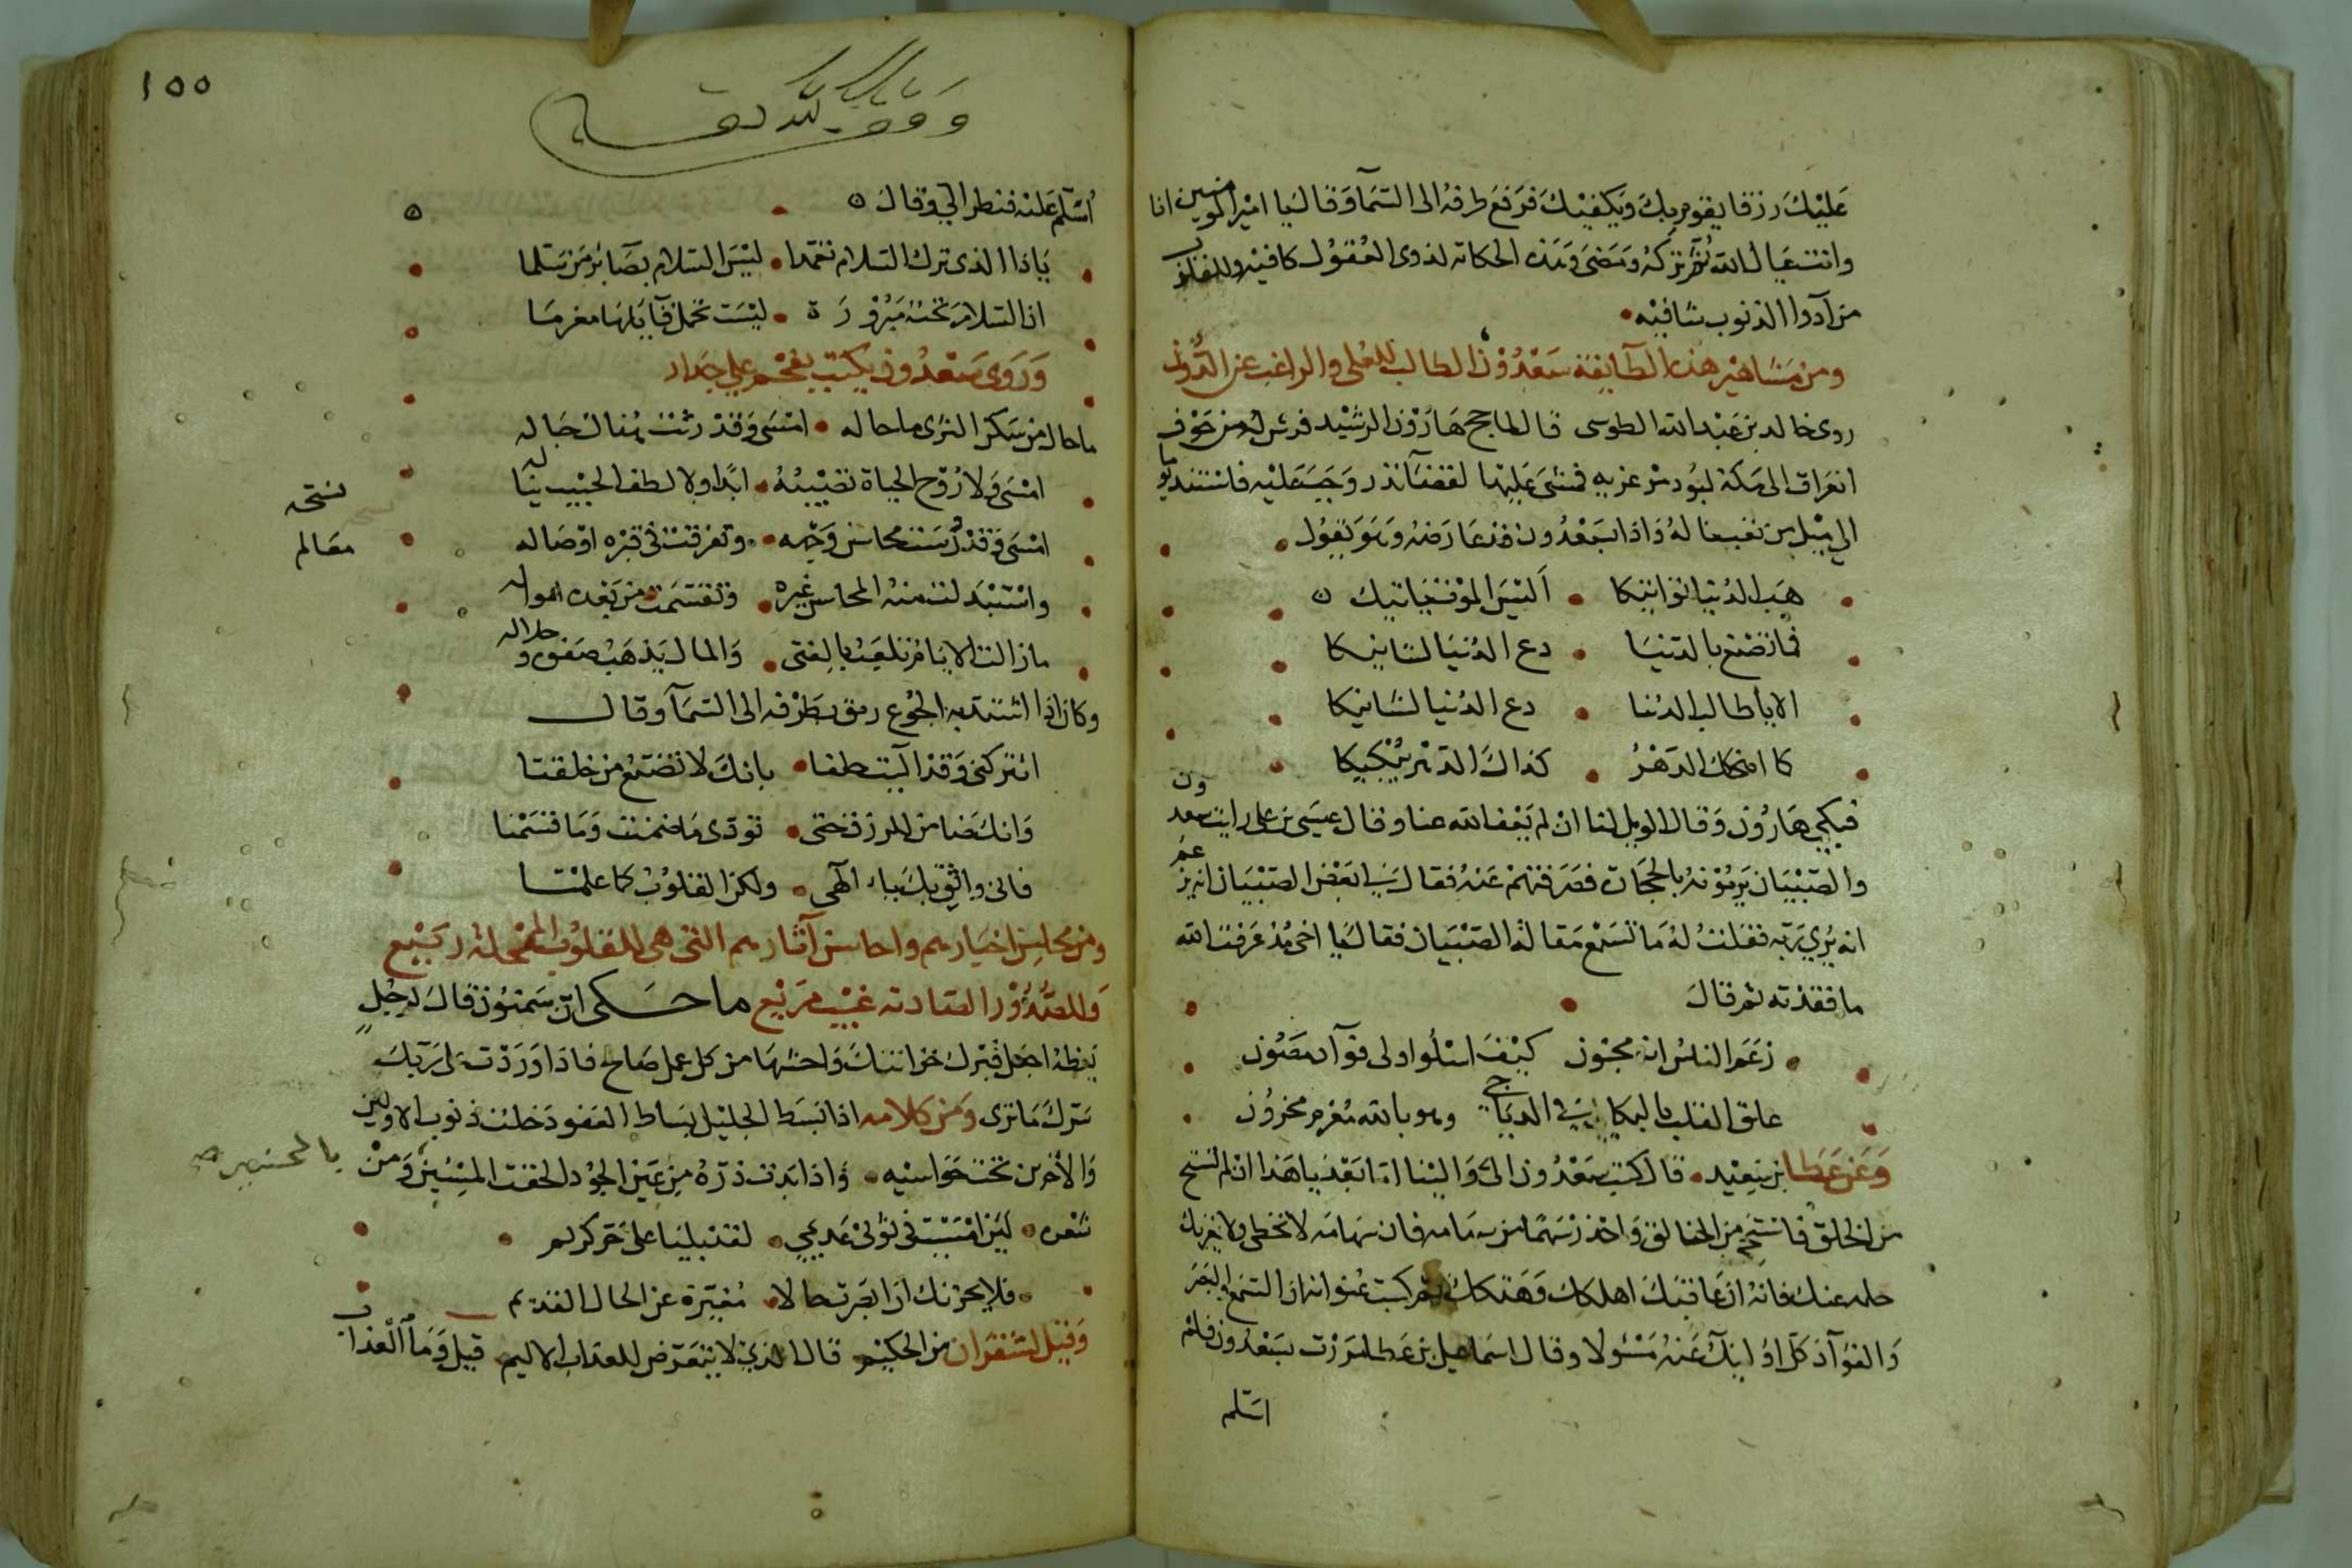 عليك رزقا يقوم بك ويكفيك فرفع طرفه الى السمآ وقال يا امير المومنين انا
وانت عيال الله ثم تركه ومضى وهذه الحكاية لذوى العقول كافيه وللقلوب
من ادوا الذنوب شافيه
ومن مشاهير هذه الطآيفة سعدون الطالب للعلى والراغب عن الدون
روى خالد بن عبد الله الطوسى قال لما حج هارون الرشيد فرش له من جوف
العراق الى مكة لبود مرعزيه فمشى عليها لقضآ نذر وجب عليه فاستند يوما
الى ميل من تعب ناله واذا بسعدون قد عارضه وهو يقول
هب الدنيا تواتيكا • اليس الموت ياتيك
فما تصنع بالدنيا • دع الدنيا لشانيكا
الا يا طالب الدنيا • دع الدنيا لشانيكا
كما اضحكك الدهر • كذاك الدهر يبكيكا
فبكى هارون وقال الويل لنا ان لم يعف الله عنا وقال عيسى بن على رايت سعدون
والصبيان يرمونه بالحجارة فصرفتهم عنه فقال لى بعض الصبيان انه يزعم
انه يرى ربه فقلت له ما تسمع مقالة الصبيان فقال يا اخى مذ عرفت الله
ما فقدته ثم قال
زعم الناس انه مجنون كيف اسلوا ولى فوآد مصون
علق القلب بالبكا فى الدياجي وهو بالله مغرم محزون
وعن عطا بن سعيد • قال كتب سعدون الى والينا اما بعد يا هذا ان لم تستح
من الخلق فاستحى من الخالق واحذر سهما من سهامه فان سهامه لا تخطى ولا يغرنك
حلمه عنك فانه ان عاقبك اهلكك وهتكك ثم كتب عنوانه ان السمع والبصر
والفوآد كل اوليك عنه مسئولا وقال اسماعيل بن عطا مررت بسعدون فلم
اسلم
١٥٥
وقف لله تعالى
اسلم عليه فنظر الي وقال
يا ذا الذى ترك السلام تعمدا • ليس السلام بضائر من سلما
ان السلام تحية مبرورة • ليست تحمل قآيلها مغرما
وروى سعدون يكتب بفحم على جدار
ما حال من سكن الثرى ما حاله • امسى وقد رثت هناك حباله
امسى ولا روح الحياة تصيبه • ابدا ولا لطف الحبيب يناله
امسى وقد درست محاسن وجهه • وتفرقت فى قبره اوصاله
نسخه
معالم
واستبدلت منه المحاسن غيره • وتقسمت من بعده امواله
ما زالت الايام تلعب بالفتى • والمال يذهب صفوه وحلاله
وكان اذا اشتد به الجوع رمق بطرفه الى السمآ وقال
اتتركنى وقد اليت حلفا • بانك لا تضيع من خلقتا
وانك ضامن للرزق حتى • تودى ما ضمنت وما قسمتا
فانى واثق بك يا الهى • ولكن القلوب كما علمتا
ومن محاسن اخبارهم واحاسن آثارهم التى هى للقلوب الممحلة ربيع
وللصدور الصاديه غيث مريع ما حكى ان سمنون قال لرجل
يعظه اجعل قبرك خزانتك واحشها من كل عمل صالح فاذا وردت على ربك
سرك ما ترى ومن كلامه اذا بسط الجليل بساط العفو دخلت ذنوب الاولين
والاخرين تحت حواشيه • واذا بدت ذرة من عين الجود الحقت المسيئين ومن
بالمحسنين صح
شعره • لئن امسيت فى ثوبى عديم • لقد بليا على حر كريم
• فلا يحزنك ان ابصرت حالا • مغيرة عن الحال القديم
وقيل لشقران من الحكيم قال الذي لا يتعرض للعذاب الاليم قيل وما العذاب